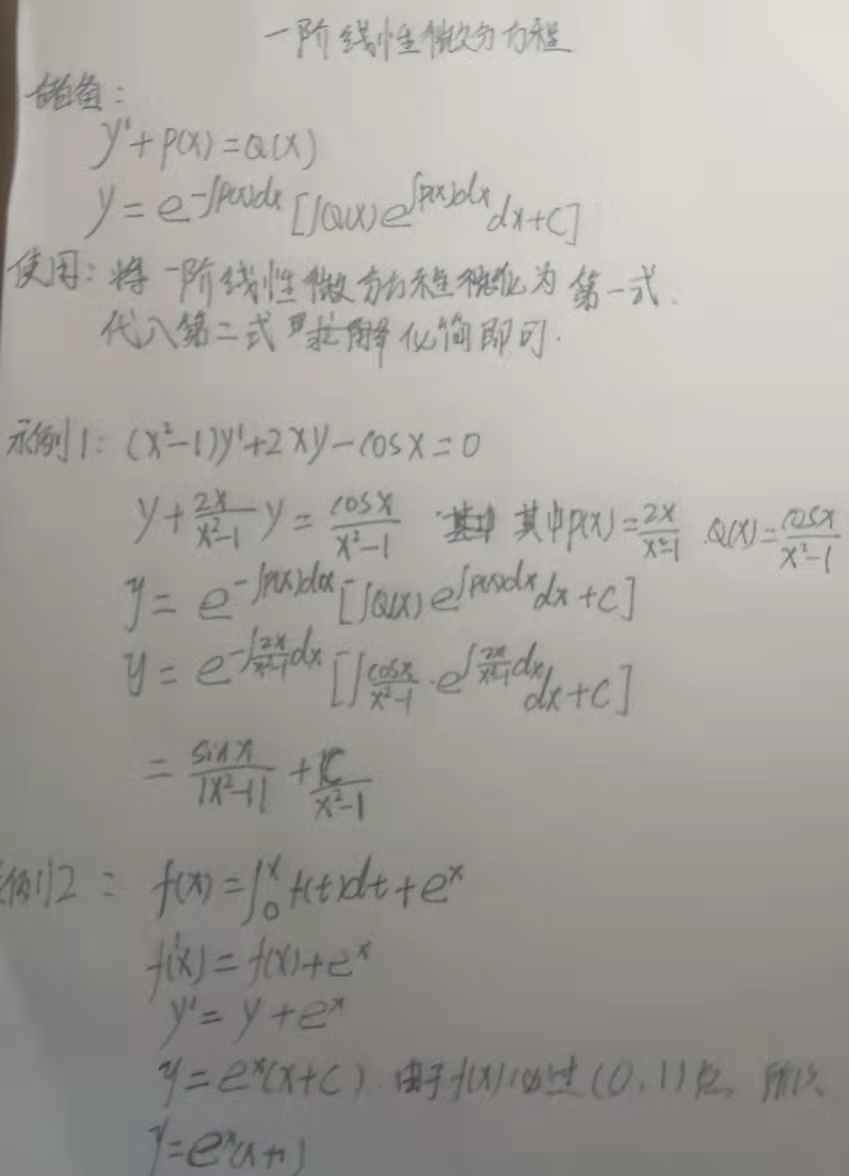 一阶线性微分方程
储备:
y'+p(x)=Q(x)
y=e^{-∫p(x)dx}[∫Q(x)e^{∫p(x)dx}dx+C]
使用: 将一阶线性微分方程转化为第一式.
代入第二式 化简即可.
示例1: (x²-1)y'+2xy-cosx=0
y+\frac{2x}{x²-1}y=\frac{cosx}{x²-1} 其中p(x)=\frac{2x}{x²-1} Q(x)=\frac{cosx}{x²-1}
y=e^{-∫p(x)dx}[∫Q(x)e^{∫p(x)dx}dx+C]
y=e^{-∫\frac{2x}{x²-1}dx}[∫\frac{cosx}{x²-1}·e^{∫\frac{2x}{x²-1}dx}dx+C]
=\frac{sinx}{|x²-1|}+\frac{C}{x²-1}
例2: f(x)=∫_0^x f(t)dt+e^x
f'(x)=f(x)+e^x
y'=y+e^x
y=e^x(x+C) 由于f(x)必过(0.1)点, 所以
y=e^x(x+1)